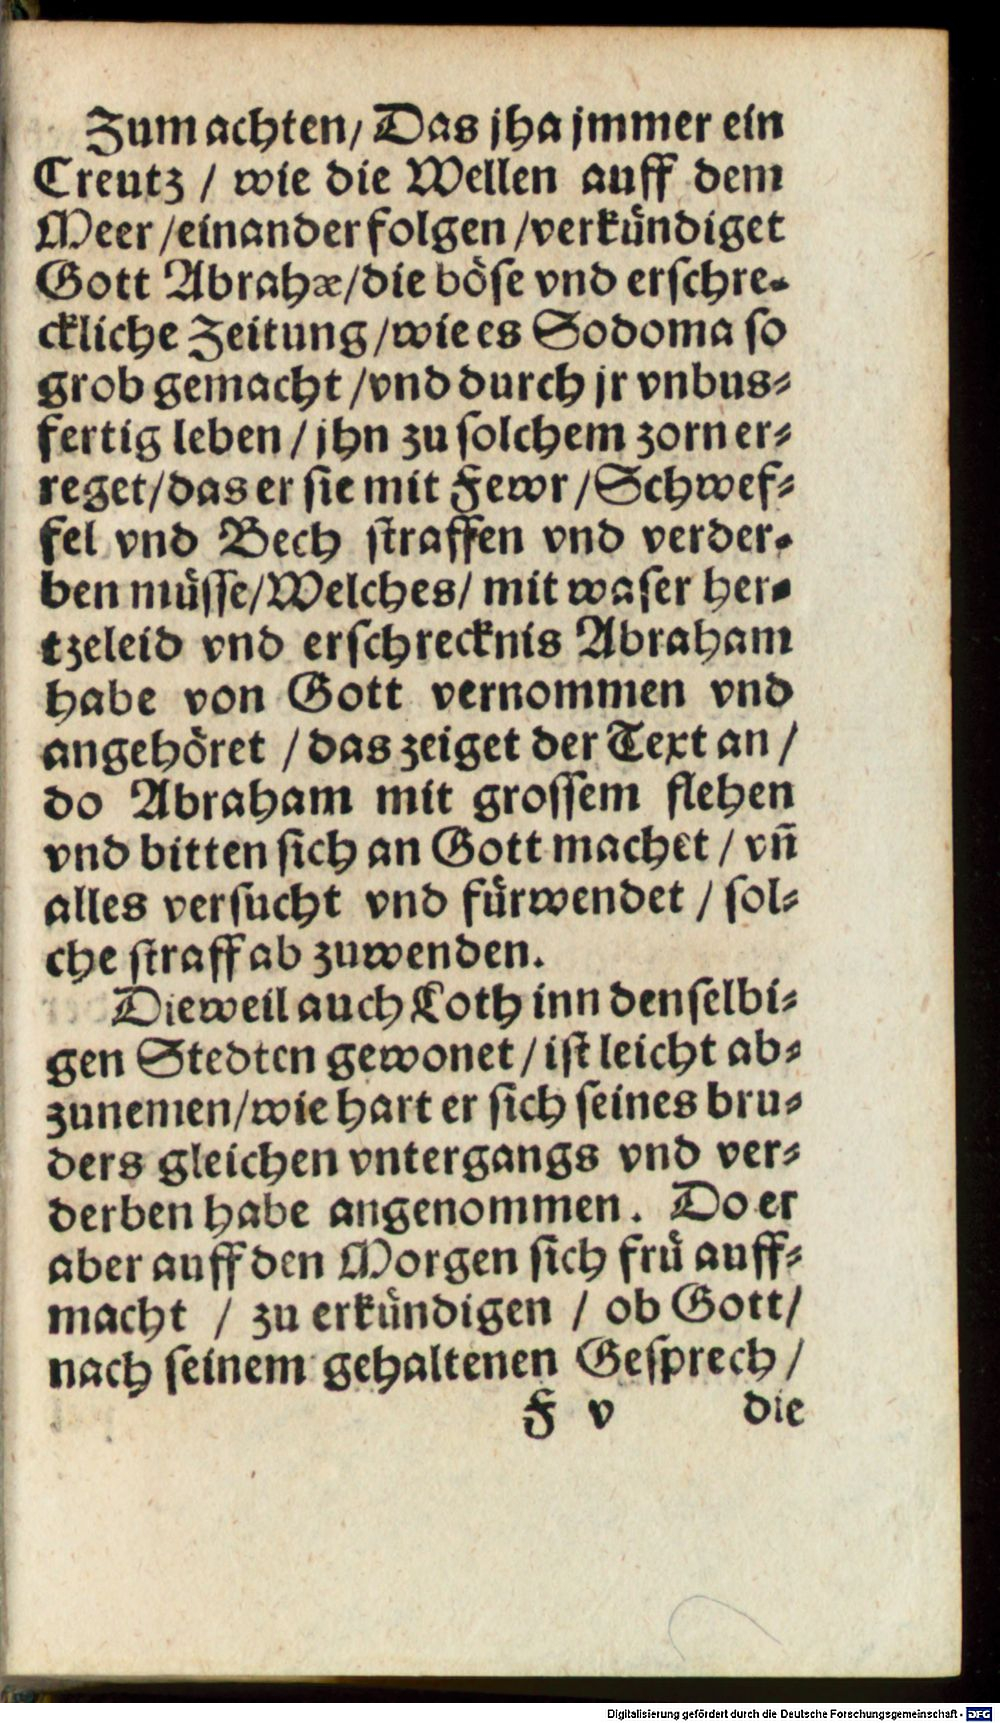 Zum achten/ Das jha jmmer ein
Creutz / wie die Wellen auff dem
Meer /einander folgen /verkündiget
Gott Abrahæ/die böse vnd erschre-
ckliche Zeitung/wie es Sodoma so
grob gemacht /vnd durch jr vnbus-
fertig leben / jhn zu solchem zorn er-
reget/das er sie mit Fewr /Schwef-
fel vnd Bech straffen vnd verder-
ben müsse/Welches/ mit waser her-
tzeleid vnd erschrecknis Abraham
habe von Gott vernommen vnd
angehöret / das zeiget der Text an /
do Abraham mit grossem flehen
vnd bitten sich an Gott machet / vn̄
alles versucht vnd fürwendet / sol-
che straff ab zuwenden.
Dieweil auch Loth inn denselbi-
gen Stedten gewonet / ist leicht ab-
zunemen/wie hart er sich seines bru-
ders gleichen vntergangs vnd ver-
derben habe angenommen. Do er
aber auff den Morgen sich frü auff-
macht / zu erkündigen / ob Gott/
nach seinem gehaltenen Gesprech /
F v die
Digitalisierung gefördert durch die Deutsche Forschungsgemeinschaft - DFG